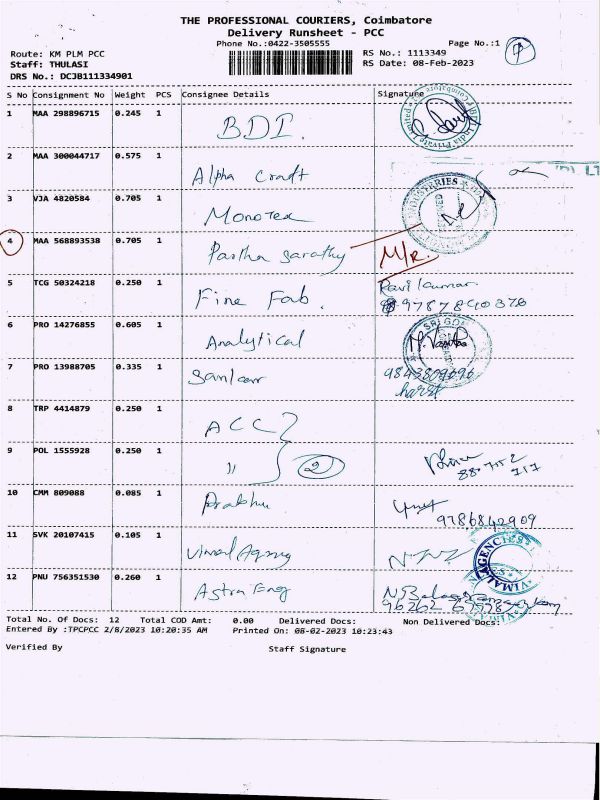 THE PROFESSIONAL COURIERS, Coimbatore
Delivery Runsheet - PCC
Phone No.:0422-3505555
Page No.:1
Route: KM PLM PCC
RS No.: 1113349
Staff: THULASI
RS Date: 08-Feb-2023
DRS No.: DCJB111334901
S No Consignment No Weight PCS Consignee Details Signature
1 MAA 298896715 0.245 1 BDI.
2 MAA 300044717 0.575 1 Alpha Craft
3 VJA 4820584 0.705 1 Monotex
INDUSTRIES
4 MAA 568893538 0.705 1 Partha Sarathy M/R.
5 TCG 50324218 0.250 1 Fine Fab. Ravikumar
9787840376
6 PRO 14276855 0.605 1 Analytical
7 PRO 13988705 0.335 1 9843809696
8 TRP 4414879 0.250 1 ACC
9 POL 1555928 0.250 1 " 2
10 CMM 809088 0.085 1 Prabhu
9786842909
11 SVK 20107415 0.105 1 Vimal Agency VIMAL AGENCIES
12 PNU 756351530 0.260 1 Astra Eng
Total No. Of Docs: 12 Total COD Amt: 0.00 Delivered Docs: Non Delivered Docs:
Entered By :TPCPCC 2/8/2023 10:20:35 AM Printed On: 08-02-2023 10:23:43
Verified By Staff Signature